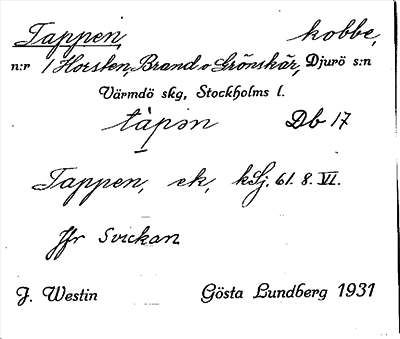 Tappen, kobbe,
n:r 1 Horsten, Brand o Grönskär, Djurö s:n
Värmdö skg, Stockholms l.
tàpən Db 17
Tappen, ek, kSj. 61. 8. VI.
Jfr Svickan
J. Westin Gösta Lundberg 1931